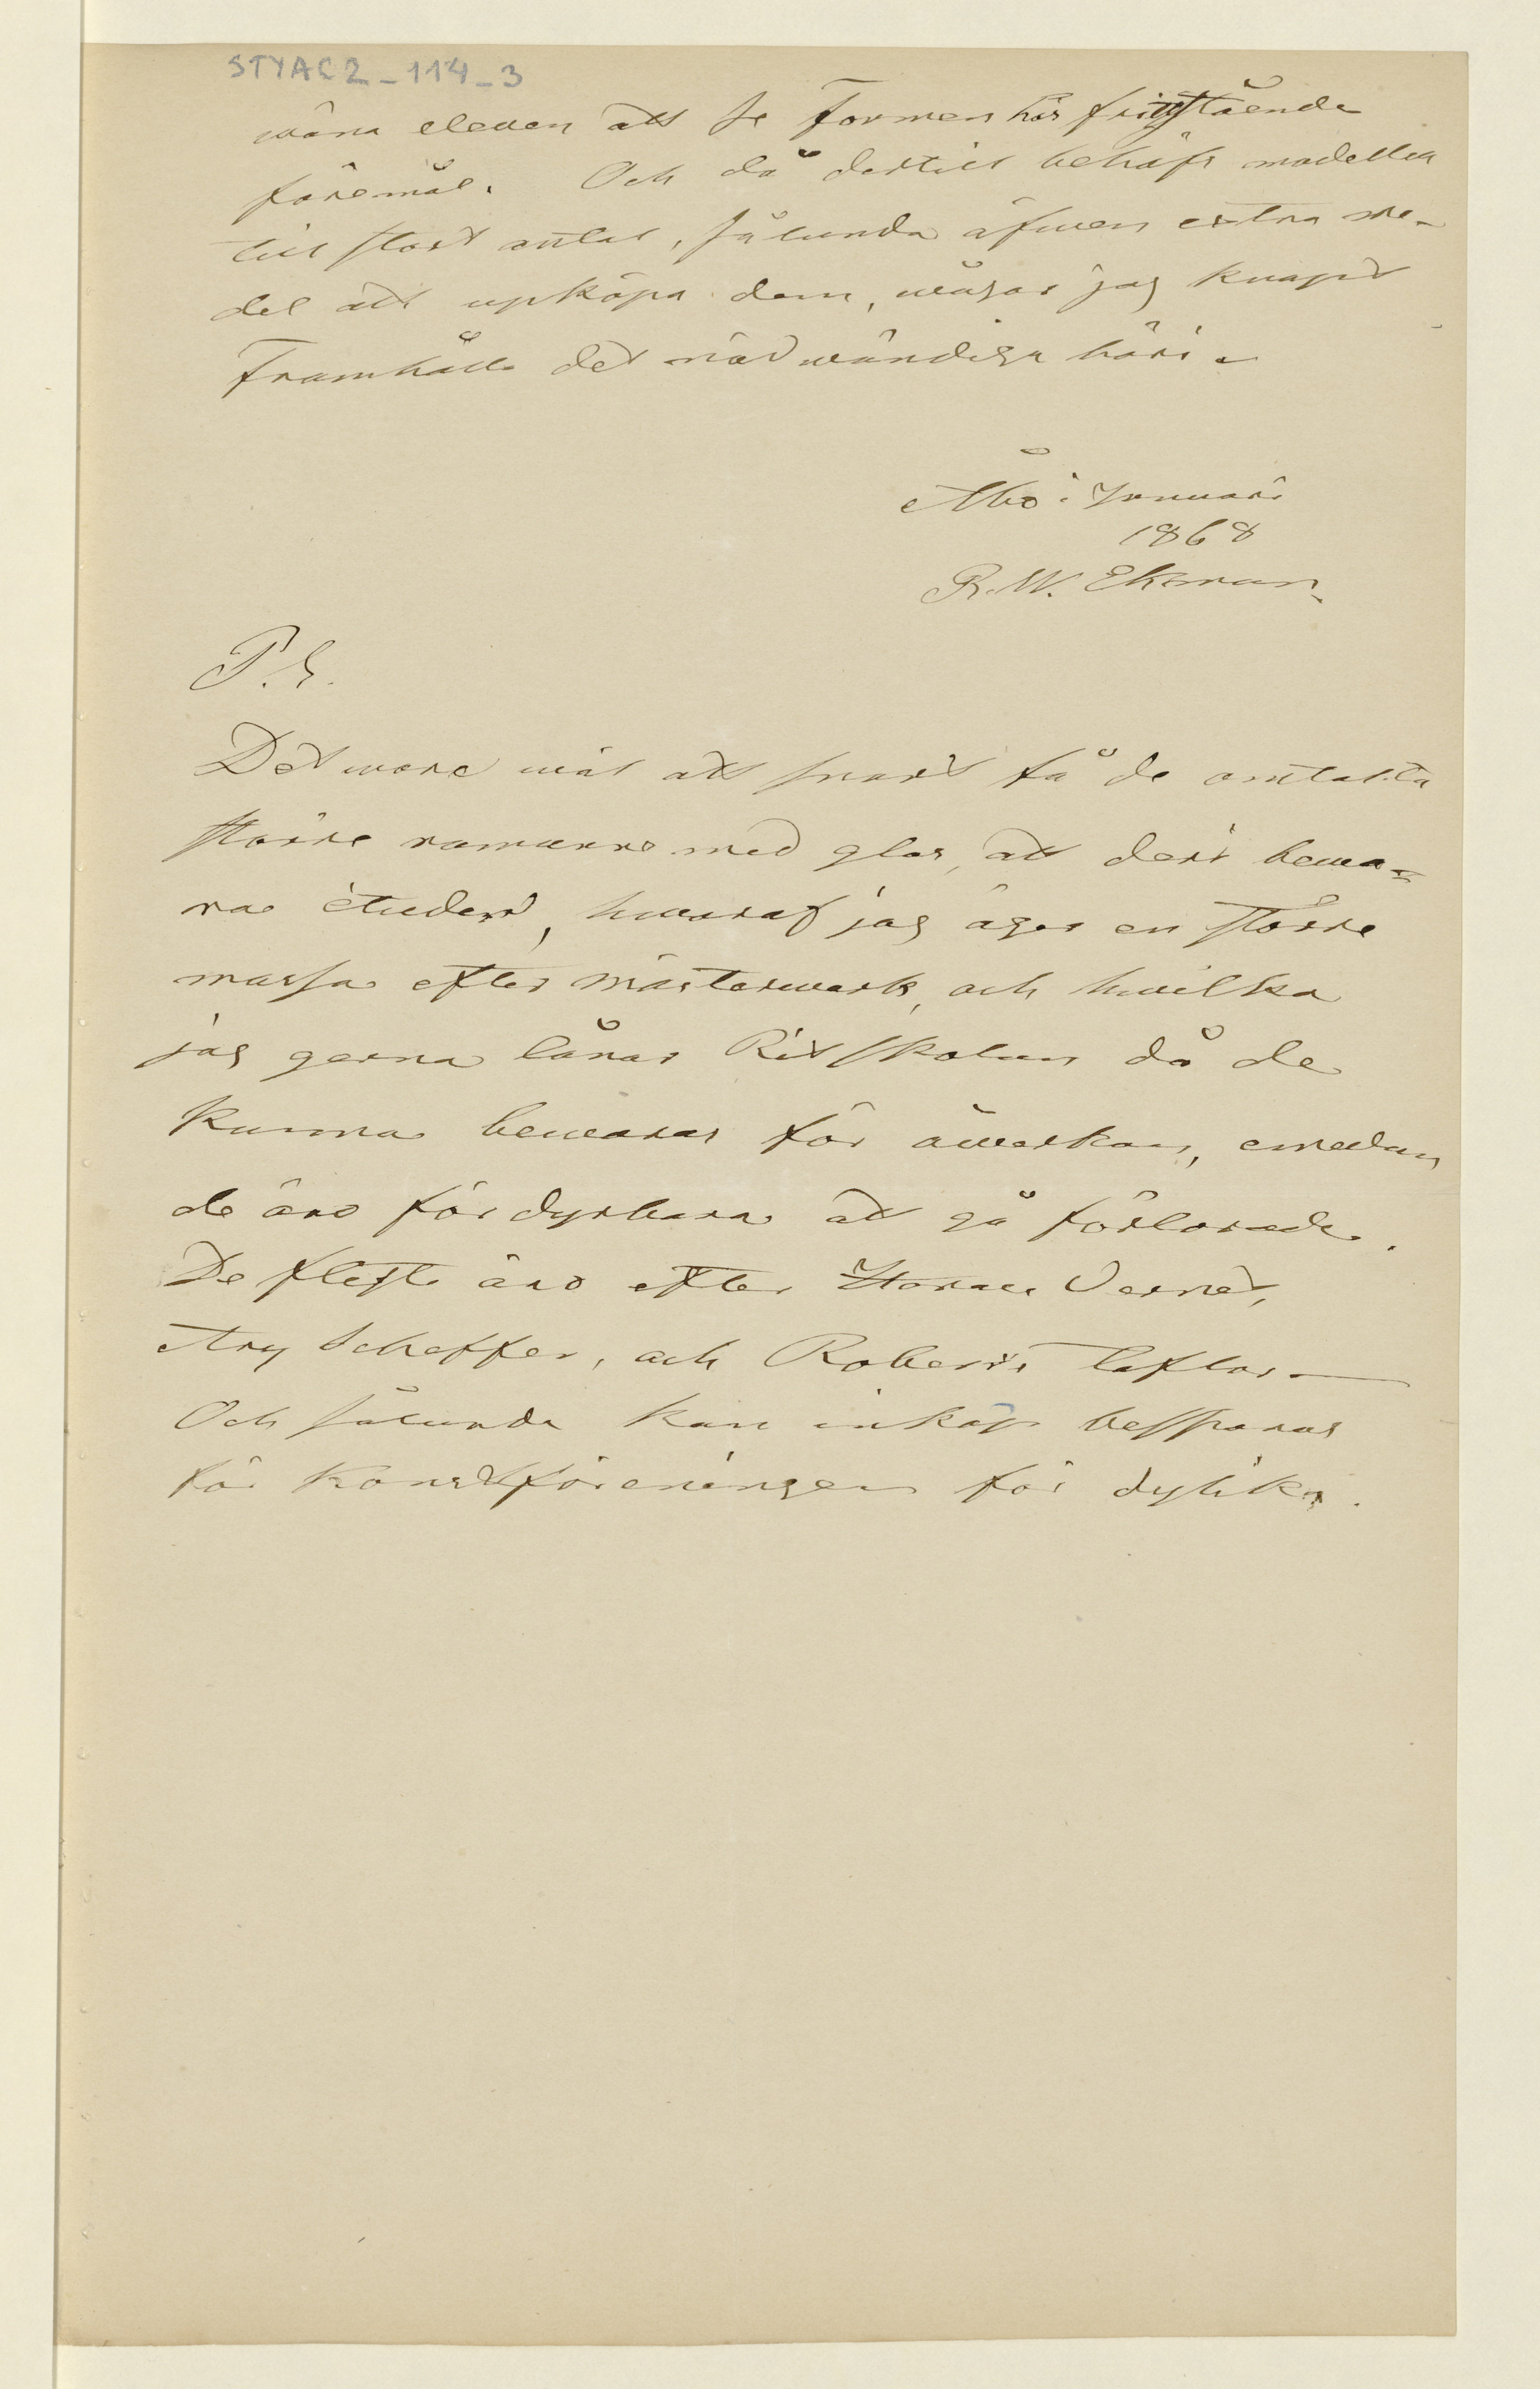 STYAC2_114_3
wäna eleven att se formen hos fristående
föremål. Och då dertill behöfs modeller
till stort antal, sålunda äfwen extra me-
del att upköpa dem, wågar jag knapt
framhålla det nödwändiga häri.
Åbo i Januari
1868
R. W. Ekman.
P.S.
Det wore wäl att snart få de omtalta
större ramarne med glas, att deri bewa=
ras études, hwaraf jag äger en större
massa efter mästerwerk, och hwilka
jag gerna lånar Ritskolan då de
kunna bewaras för åwerkan, emedan
de äro för dyrbara att gå förlorade.
De fleste äro efter Horace Vernet,
Ary Scheffer, och Roberts taflor—
Och sålunda kan inköp besparas
för Konstföreningen för dylika.